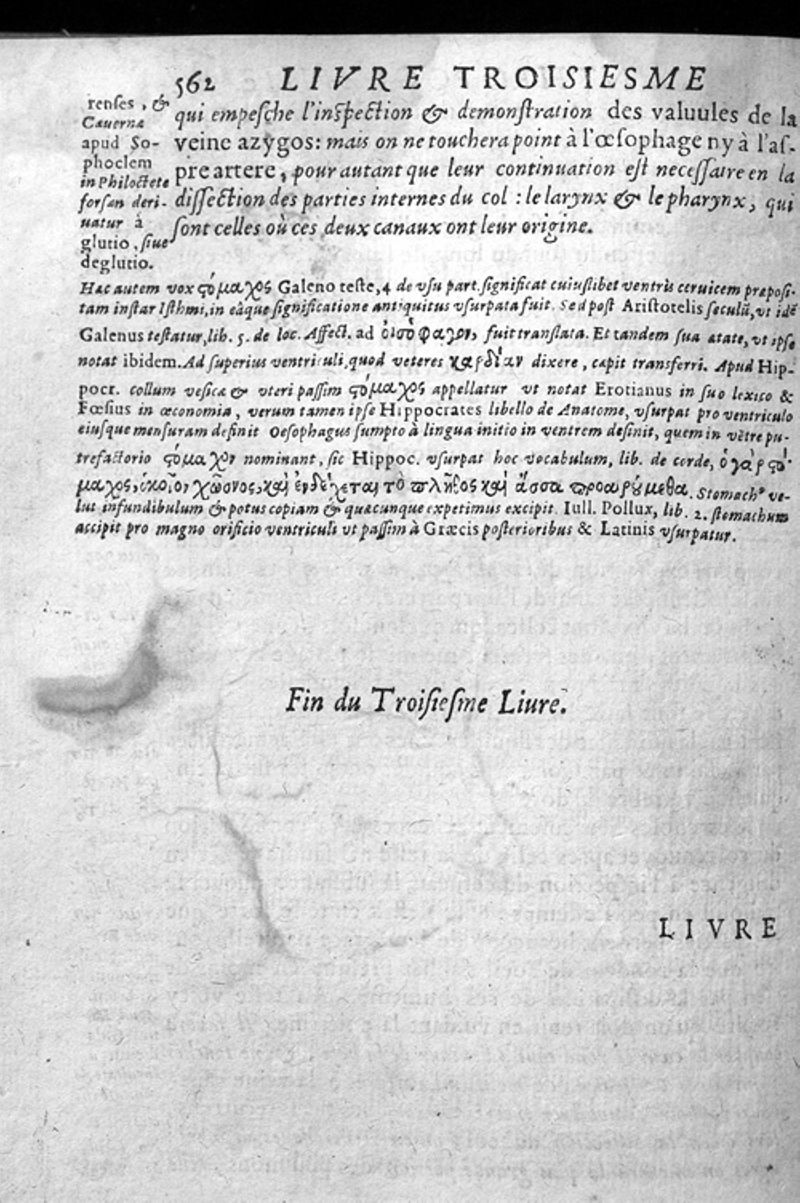 562 LIVRE TROISIESME
renses, &
Cauernæ
apud So-
phoclem
in Philoctete
forsan deri-
uatur à
glutio, siue
deglutio.
qui empesche l'inspection & demonstration des valuules de la
veine azygos: mais on ne touchera point à l'œsophage ny à l'as-
pre artere, pour autant que leur continuation est necessaire en la
dissection des parties internes du col : le larynx & le pharynx, qui
sont celles où ces deux canaux ont leur origine.
Hac autem vox ςόμαχος Galeno teste, 4 de vsu part. significat cuiuslibet ventris ceruicem præposi-
tam instar Isthmi, in eâque significatione antiquitus vsurpata fuit. Sed post Aristotelis seculũ, vt idẽ
Galenus testatur, lib. 5. de loc. Affect. ad οἰσοφαγον, fuit translata. Et tandem sua ætate, vt ipse
notat ibidem. Ad superius ventriculi, quod veteres καρδίαν dixere, cœpit transferri. Apud Hip-
pocr. collum vesicæ & vteri passim ςόμαχος appellatur vt notat Erotianus in suo lexico &
Fœsius in œconomia, verum tamen ipse Hippocrates libello de Anatome, vsurpat pro ventriculo
eiusque mensuram definit Oesophagus sumpto à lingua initio in ventrem definit, quem in vẽtre pu-
trefactorio ςόμαχον nominant, sic Hippoc. vsurpat hoc vocabulum, lib. de corde, ὁ γάρ ςό-
μαχος, ὁκοῖον χῶσνος, καὶ ἐνδέχεται τὸ πλῆθος καὶ ἅσσα προαιρούμεθα. Stomachꝰ ve-
lut infundibulum & potus copiam & quæcunque expetimus excipit. Iull. Pollux, lib. 2. stomachum
accipit pro magno orificio ventriculi vt passim à Græcis posterioribus & Latinis vsurpatur.
Fin du Troisiesme Liure.
LIVRE